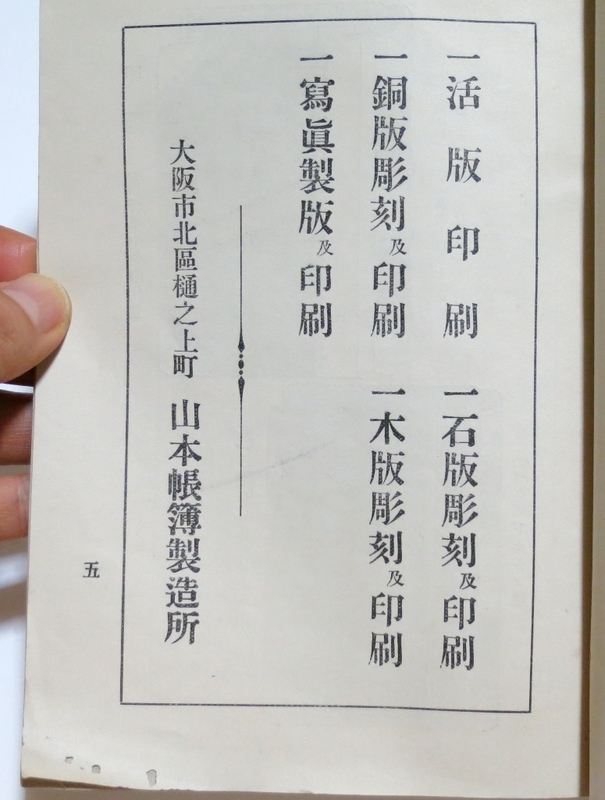 一活版印刷
一石版彫刻及印刷
一銅版彫刻及印刷
一木版彫刻及印刷
一寫眞製版及印刷
大阪市北區樋之上町 山本帳簿製造所
五